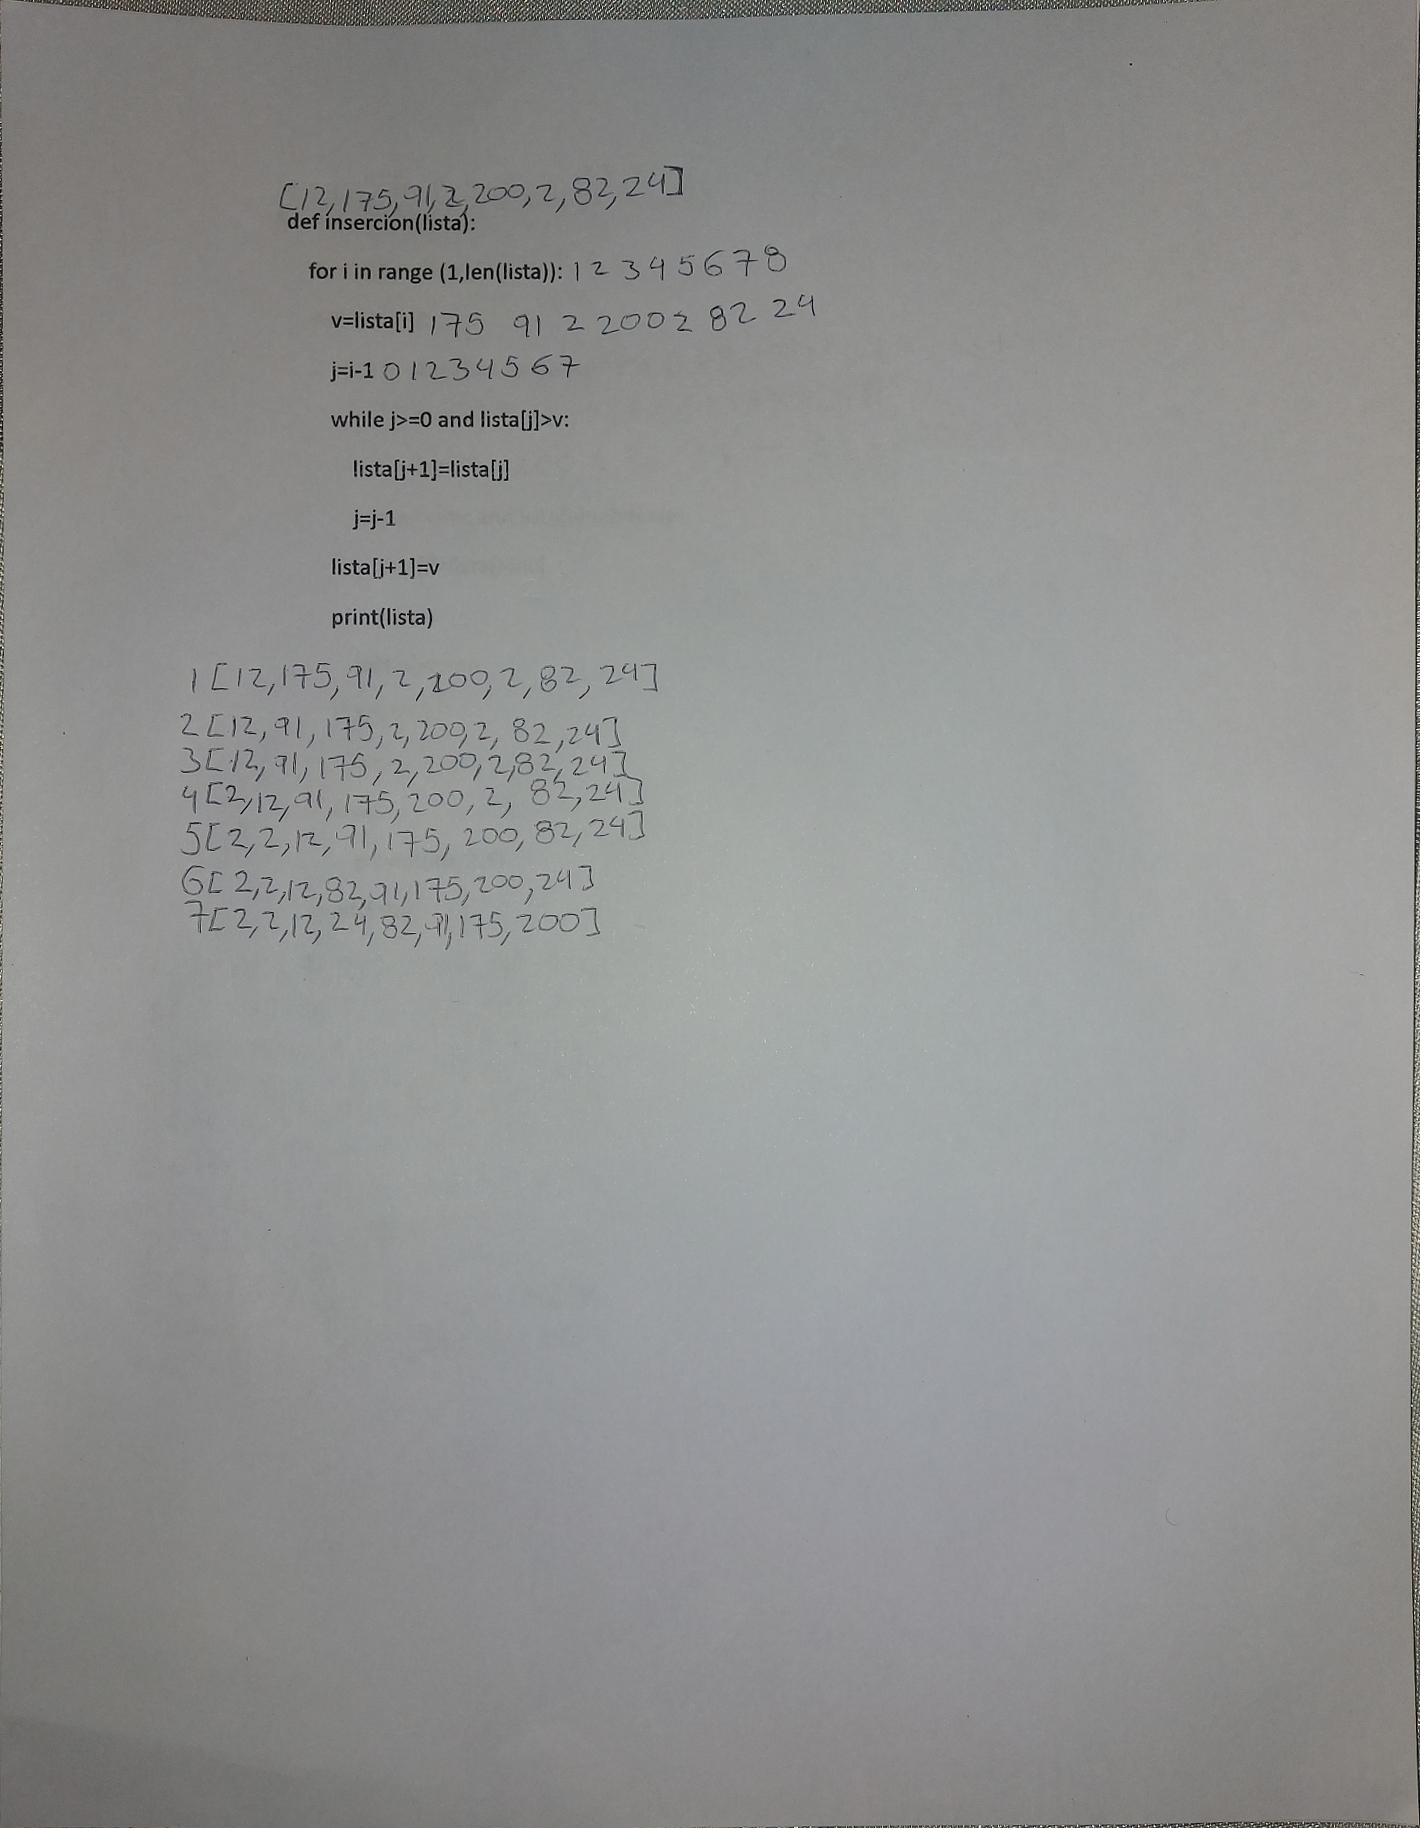 [12,175,91,2,200,2,82,24]
def insercion(lista):
for i in range (1,len(lista)): 1 2 3 4 5 6 7 8
v=lista[i] 175 91 2 200 2 82 24
j=i-1 0 1 2 3 4 5 6 7
while j>=0 and lista[j]>v:
lista[j+1]=lista[j]
j=j-1
lista[j+1]=v
print(lista)
1 [12,175,91,2,200,2,82,24]
2 [12,91,175,2,200,2,82,24]
3 [12,91,175,2,200,2,82,24]
4 [2,12,91,175,200,2,82,24]
5 [2,2,12,91,175,200,82,24]
6 [2,2,12,82,91,175,200,24]
7 [2,2,12,24,82,91,175,200]